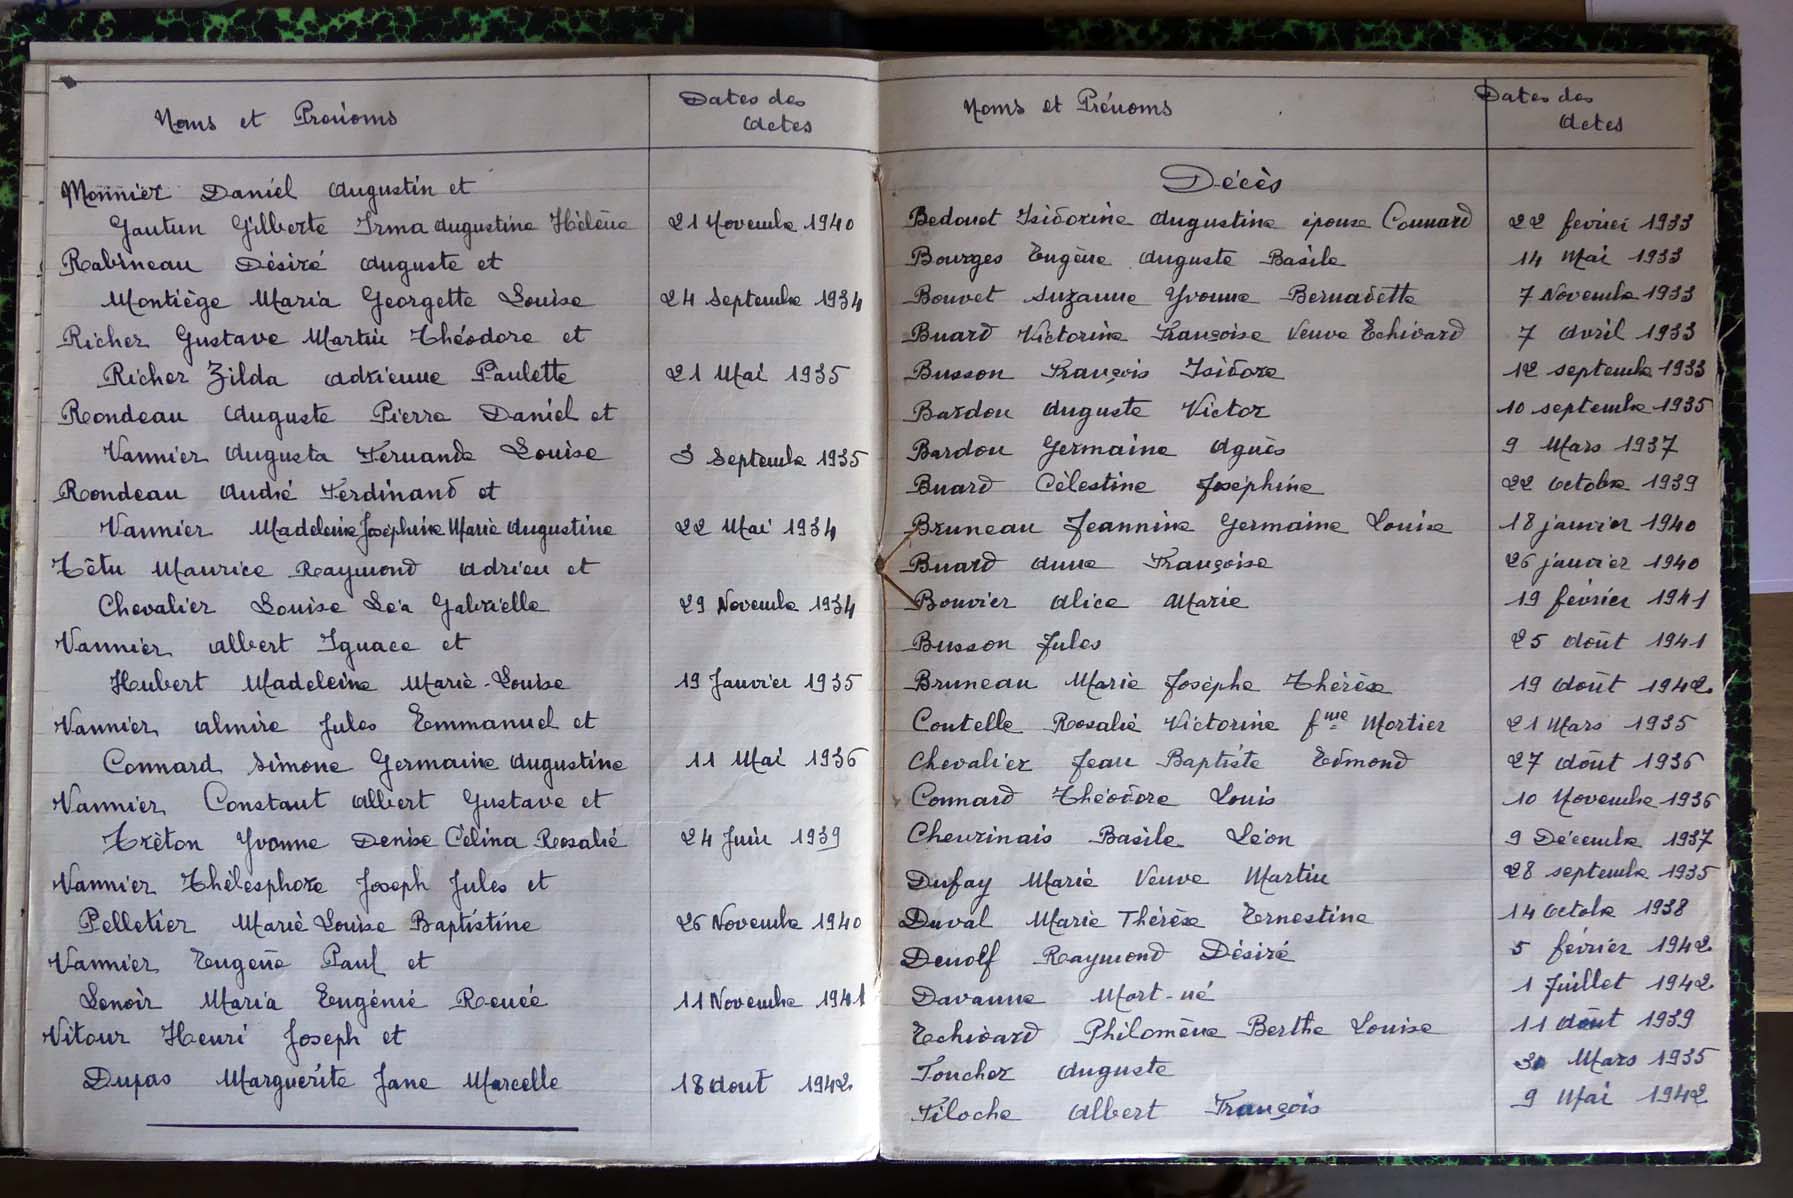 Noms et Prénoms Dates des
Actes
Monnier Daniel Augustin et
Gautun Gilberte Irma Augustine Hélène 21 Novembre 1940
Rabineau Désiré Auguste et
Montiège Maria Georgette Louise 24 Septembre 1934
Richer Gustave Martin Théodore et
Richer Zilda Adrienne Paulette 21 Mai 1935
Rondeau Auguste Pierre Daniel et
Vannier Augusta Fernande Louise 3 Septembre 1935
Rondeau André Ferdinand et
Vannier Madeleine Joséphine Marie Augustine 22 Mai 1934
Têtu Maurice Raymond Adrien et
Chevalier Louise Léa Gabrielle 29 Novembre 1934
Vannier Albert Ignace et
Hubert Madeleine Marie-Louise 19 Janvier 1935
Vannier Almire Jules Emmanuel et
Connard Simone Germaine Augustine 11 Mai 1936
Vannier Constant Albert Gustave et
Tréton Yvonne Denise Célina Rosalie 24 Juin 1939
Vannier Thélesphore Joseph Jules et
Pelletier Marie Louise Baptistine 26 Novembre 1940
Vannier Eugène Paul et
Lenoir Maria Eugénie Renée 11 Novembre 1941
Vitour Henri Joseph et
Dupas Marguerite Jane Marcelle 18 Août 1942
Noms et Prénoms Dates des
Actes
Décès
Bedouet Isidorine Augustine épouse Connard 22 février 1933
Bourges Eugène Auguste Basile 14 Mai 1933
Bouvet Suzanne Yvonne Bernadette 7 Novembre 1933
Buard Victorine Françoise Veuve Echivard 7 Avril 1933
Busson François Isidore 12 septembre 1933
Bardou Auguste Victor 10 septembre 1935
Bardou Germaine Agnès 9 Mars 1937
Buard Célestine Joséphine 22 Octobre 1939
Bruneau Jeannine Germaine Louise 18 janvier 1940
Buard Anne Françoise 26 janvier 1940
Bouvier Alice Marie 19 février 1941
Busson Jules 25 Août 1941
Bruneau Marie Josèphe Thérèse 19 Août 1942
Coutelle Rosalie Victorine fme Mortier 21 Mars 1935
Chevalier Jean Baptiste Edmond 27 Août 1936
Connard Théodore Louis 10 Novembre 1936
Cheurinais Basile Léon 9 Décembre 1937
Dufay Marie Veuve Martin 28 septembre 1935
Duval Marie Thérèse Ernestine 14 Octobre 1938
Denolf Raymond Désiré 5 février 1942
Davanne Mort-né 1 Juillet 1942
Echivard Philomène Berthe Louise 11 Août 1939
Foucher Auguste Mars 1935
Filoche Albert François 9 Mai 1942